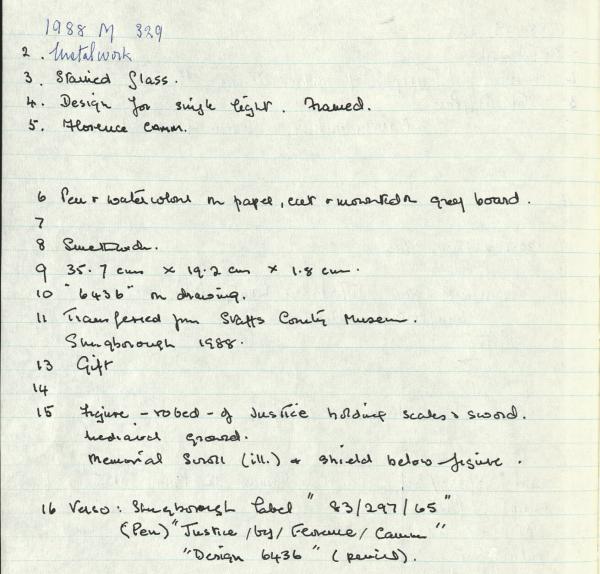 1988 M 329
2. Metalwork
3. Stained Glass.
4. Design for single light. Framed.
5. Florence Camm.
6 Pen + watercolour on paper, cut + mounted on grey board.
7
8 Smethwick.
9 35.7 cms × 19.2 cm × 1.8 cm.
10 "6436" on drawing.
11 Transferred from Staffs County Museum.
Shugborough 1988.
13 Gift
14
15 Figure - robed - of Justice holding scales + sword.
Mediaival ground.
Memorial Scroll (ill.) + shield below figure.
16 Verso: Shugborough label "83/297/65"
(Pen) "Justice /by/ Florence / Camm"
"Design 6436" (pencil).